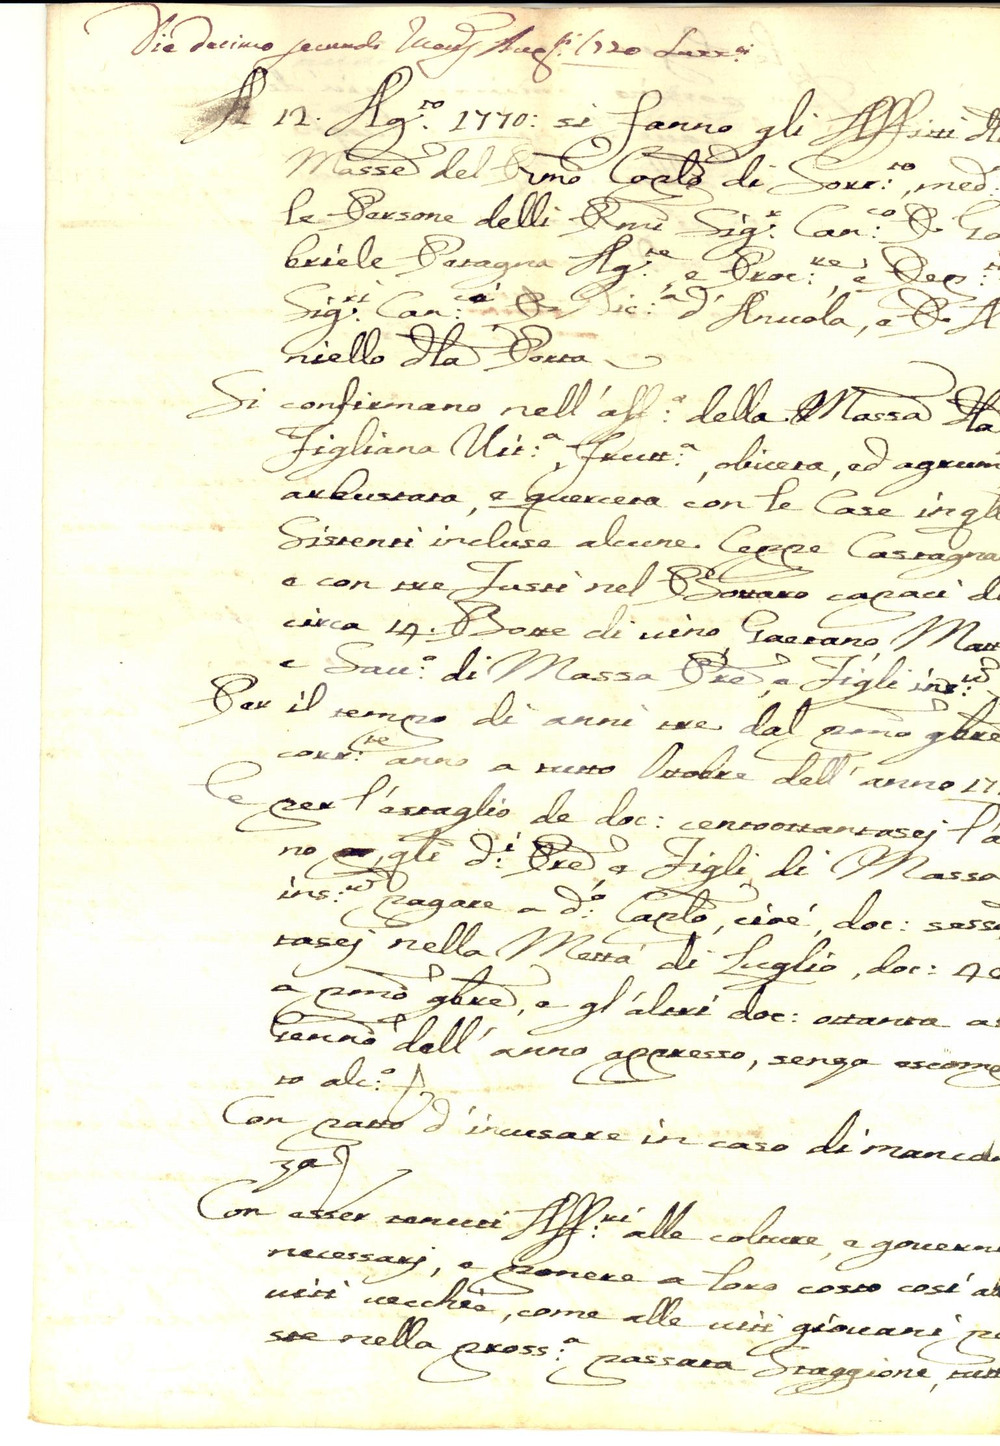 Die decimo secundo Mens Aug.ti 1770
A 12. Ag.to 1770: si fanno gli Affitti dlla
Masse del Rmo Caplo di Sorr:to, med:
le Persone delli Rmi Sig.r Can:co D. Ga
briele Paragna Ag.te, e Proc:re, e Dep:ti
Sig:ri Can:ci D. Nic:a d'Ancola, e D. A
niello dlla Porta
Si confirmano nell'aff:a della Massa dlla
Figliana Vit:a, frutt:a, oliveta, ed agrum
arbustata, e querceta con le Case in gl
sistenti incluse alcune Ceppe Castagna
e con tre Fusti nel Bottaro capaci di
circa 14. Botte di vino, Gaetano, Matt
e Sav:o di Massa Pre, e Figli ins:m
Per il tempo di anni tre dal pmo 9bre
corr:te anno a tutto Ottobre dell'anno 17
e per l'estaglio de doc: centoottantasej l'a
no gli d:i Pre, e Figli di Massa
ins:m pagare a d:o Caplo, cioè, doc: sess
tasej nella Mettà di Luglio, doc: 40
a pmo 9bre, e gl'altri doc: ottanta a
Genno dell'anno appresso, senza escome
to alc:o
Con patto d'incusare in caso di manca
za
Con esser tenuti Aff:ri alle colture, e govern
necessarj, e ponere a loro costo così all
viti vecchie, come alle viti giovani p
ste nella pross:a passata Staggione, tutt